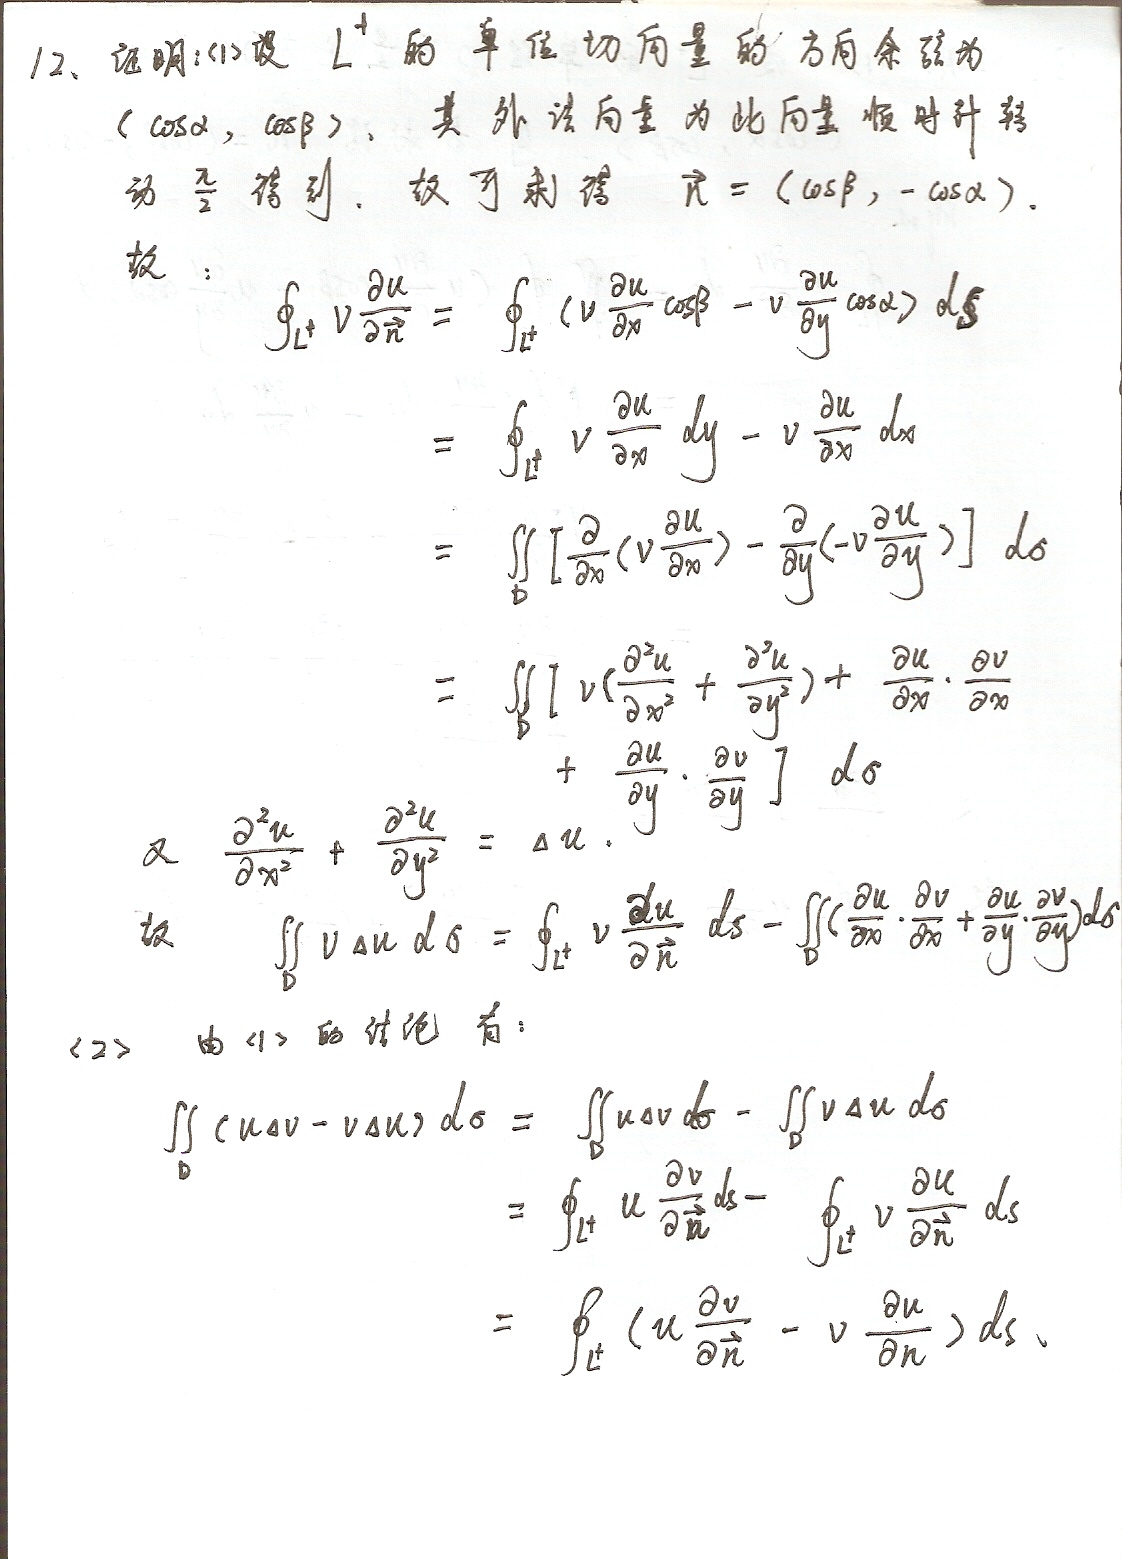 12、证明:<1>设 L⁺ 的单位切向量的方向余弦为
(cosα, cosβ)、其外法向量为此向量顺时针转
动 π/2 得到. 故可求得 n⃗ = (cosβ, -cosα).
故:
∮_{L⁺} v ∂u/∂n⃗ = ∮_{L⁺} (v ∂u/∂x cosβ - v ∂u/∂y cosα) ds
= ∮_{L⁺} v ∂u/∂x dy - v ∂u/∂x dx
= ∬_D [∂/∂x (v ∂u/∂x) - ∂/∂y (-v ∂u/∂y)] dσ
= ∬_D [ v(∂²u/∂x² + ∂²u/∂y²) + ∂u/∂x · ∂v/∂x
+ ∂u/∂y · ∂v/∂y ] dσ
又 ∂²u/∂x² + ∂²u/∂y² = Δu.
故 ∬_D vΔu dσ = ∮_{L⁺} v ∂u/∂n⃗ ds - ∬_D (∂u/∂x · ∂v/∂x + ∂u/∂y · ∂v/∂y) dσ
<2> 由<1>的讨论有:
∬_D (uΔv - vΔu) dσ = ∬_D uΔv dσ - ∬_D vΔu dσ
= ∮_{L⁺} u ∂v/∂n⃗ ds - ∮_{L⁺} v ∂u/∂n⃗ ds
= ∮_{L⁺} (u ∂v/∂n⃗ - v ∂u/∂n) ds、